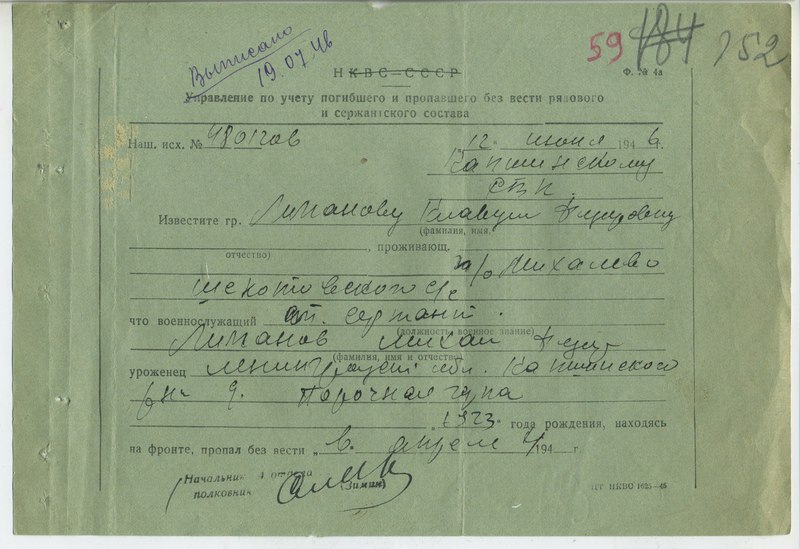 Выписано
19.07.46
59 184 152
НКВС—СССР
Ф. № 4а
Управление по учету погибшего и пропавшего без вести рядового
и сержантского состава
Наш. исх. №
"12" июня 1946г.
Капшинскому
Известите гр. Лиманову Клавдию
(фамилия, имя,
, проживающ.
отчество)
п/о Михалево
с/с
что военнослужащий ст. сержант
(должность военное звание)
Лиманов Михаил
(фамилия, имя и отчество)
уроженец Ленинградской обл. Капшинского
р/на д.
1923 года рождения, находясь
на фронте, пропал без вести „в апреле 194 г
Начальник 4 отдела
полковник (Зимин)
ЦТ НКВО 1625—45